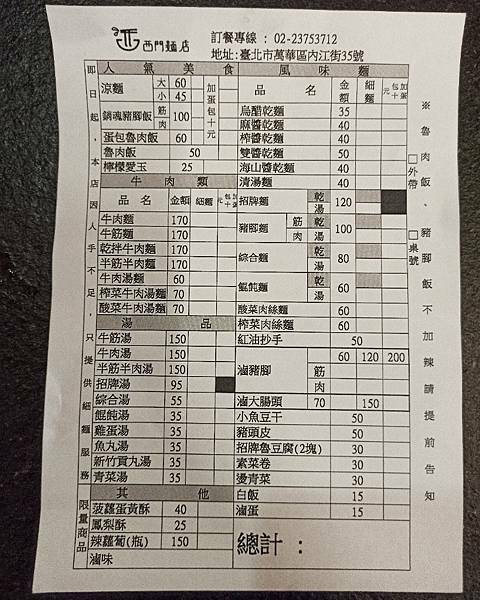 西門麵店
訂餐專線 : 02-23753712
地址:臺北市萬華區內江街35號
即日起,本店因人手不足,只提供細麵服務
人氣美食
涼麵 大 60
小 45
銷魂豬腳飯 筋 肉 100
蛋包魯肉飯 60
魯肉飯 50
檸檬愛玉 25
加蛋包十元
牛肉類
品名 金額 細麵 加蛋包十元
牛肉麵 170
牛筋麵 170
乾拌牛肉麵 170
半筋半肉麵 170
牛肉湯麵 60
榨菜牛肉湯麵 70
酸菜牛肉湯麵 70
湯品
牛筋湯 150
牛肉湯 150
半筋半肉湯 150
招牌湯 95
綜合湯 55
餛飩湯 35
雞蛋湯 35
魚丸湯 35
新竹貢丸湯 35
青菜湯 35
其他
限量商品
菠蘿蛋黃酥 40
鳳梨酥 25
辣蘿蔔(瓶) 150
滷味
風味麵
品名 金額 細麵 加蛋包十元
烏醋乾麵 35
麻醬乾麵 40
榨醬乾麵 40
雙醬乾麵 50
海山醬乾麵 40
清湯麵 40
招牌麵 乾 湯 120
豬腳麵 筋 肉 乾 湯 100
綜合麵 乾 湯 80
餛飩麵 乾 湯 60
酸菜肉絲麵 60
榨菜肉絲麵 60
紅油抄手 50
滷豬腳 60 120 200
筋
肉
滷大腸頭 70 150
小魚豆干 50
豬頭皮 50
招牌魯豆腐(2塊) 30
素菜卷 30
燙青菜 30
白飯 15
滷蛋 15
總計 :
※魯肉飯、豬腳飯不加辣請提前告知
□外帶
□桌號